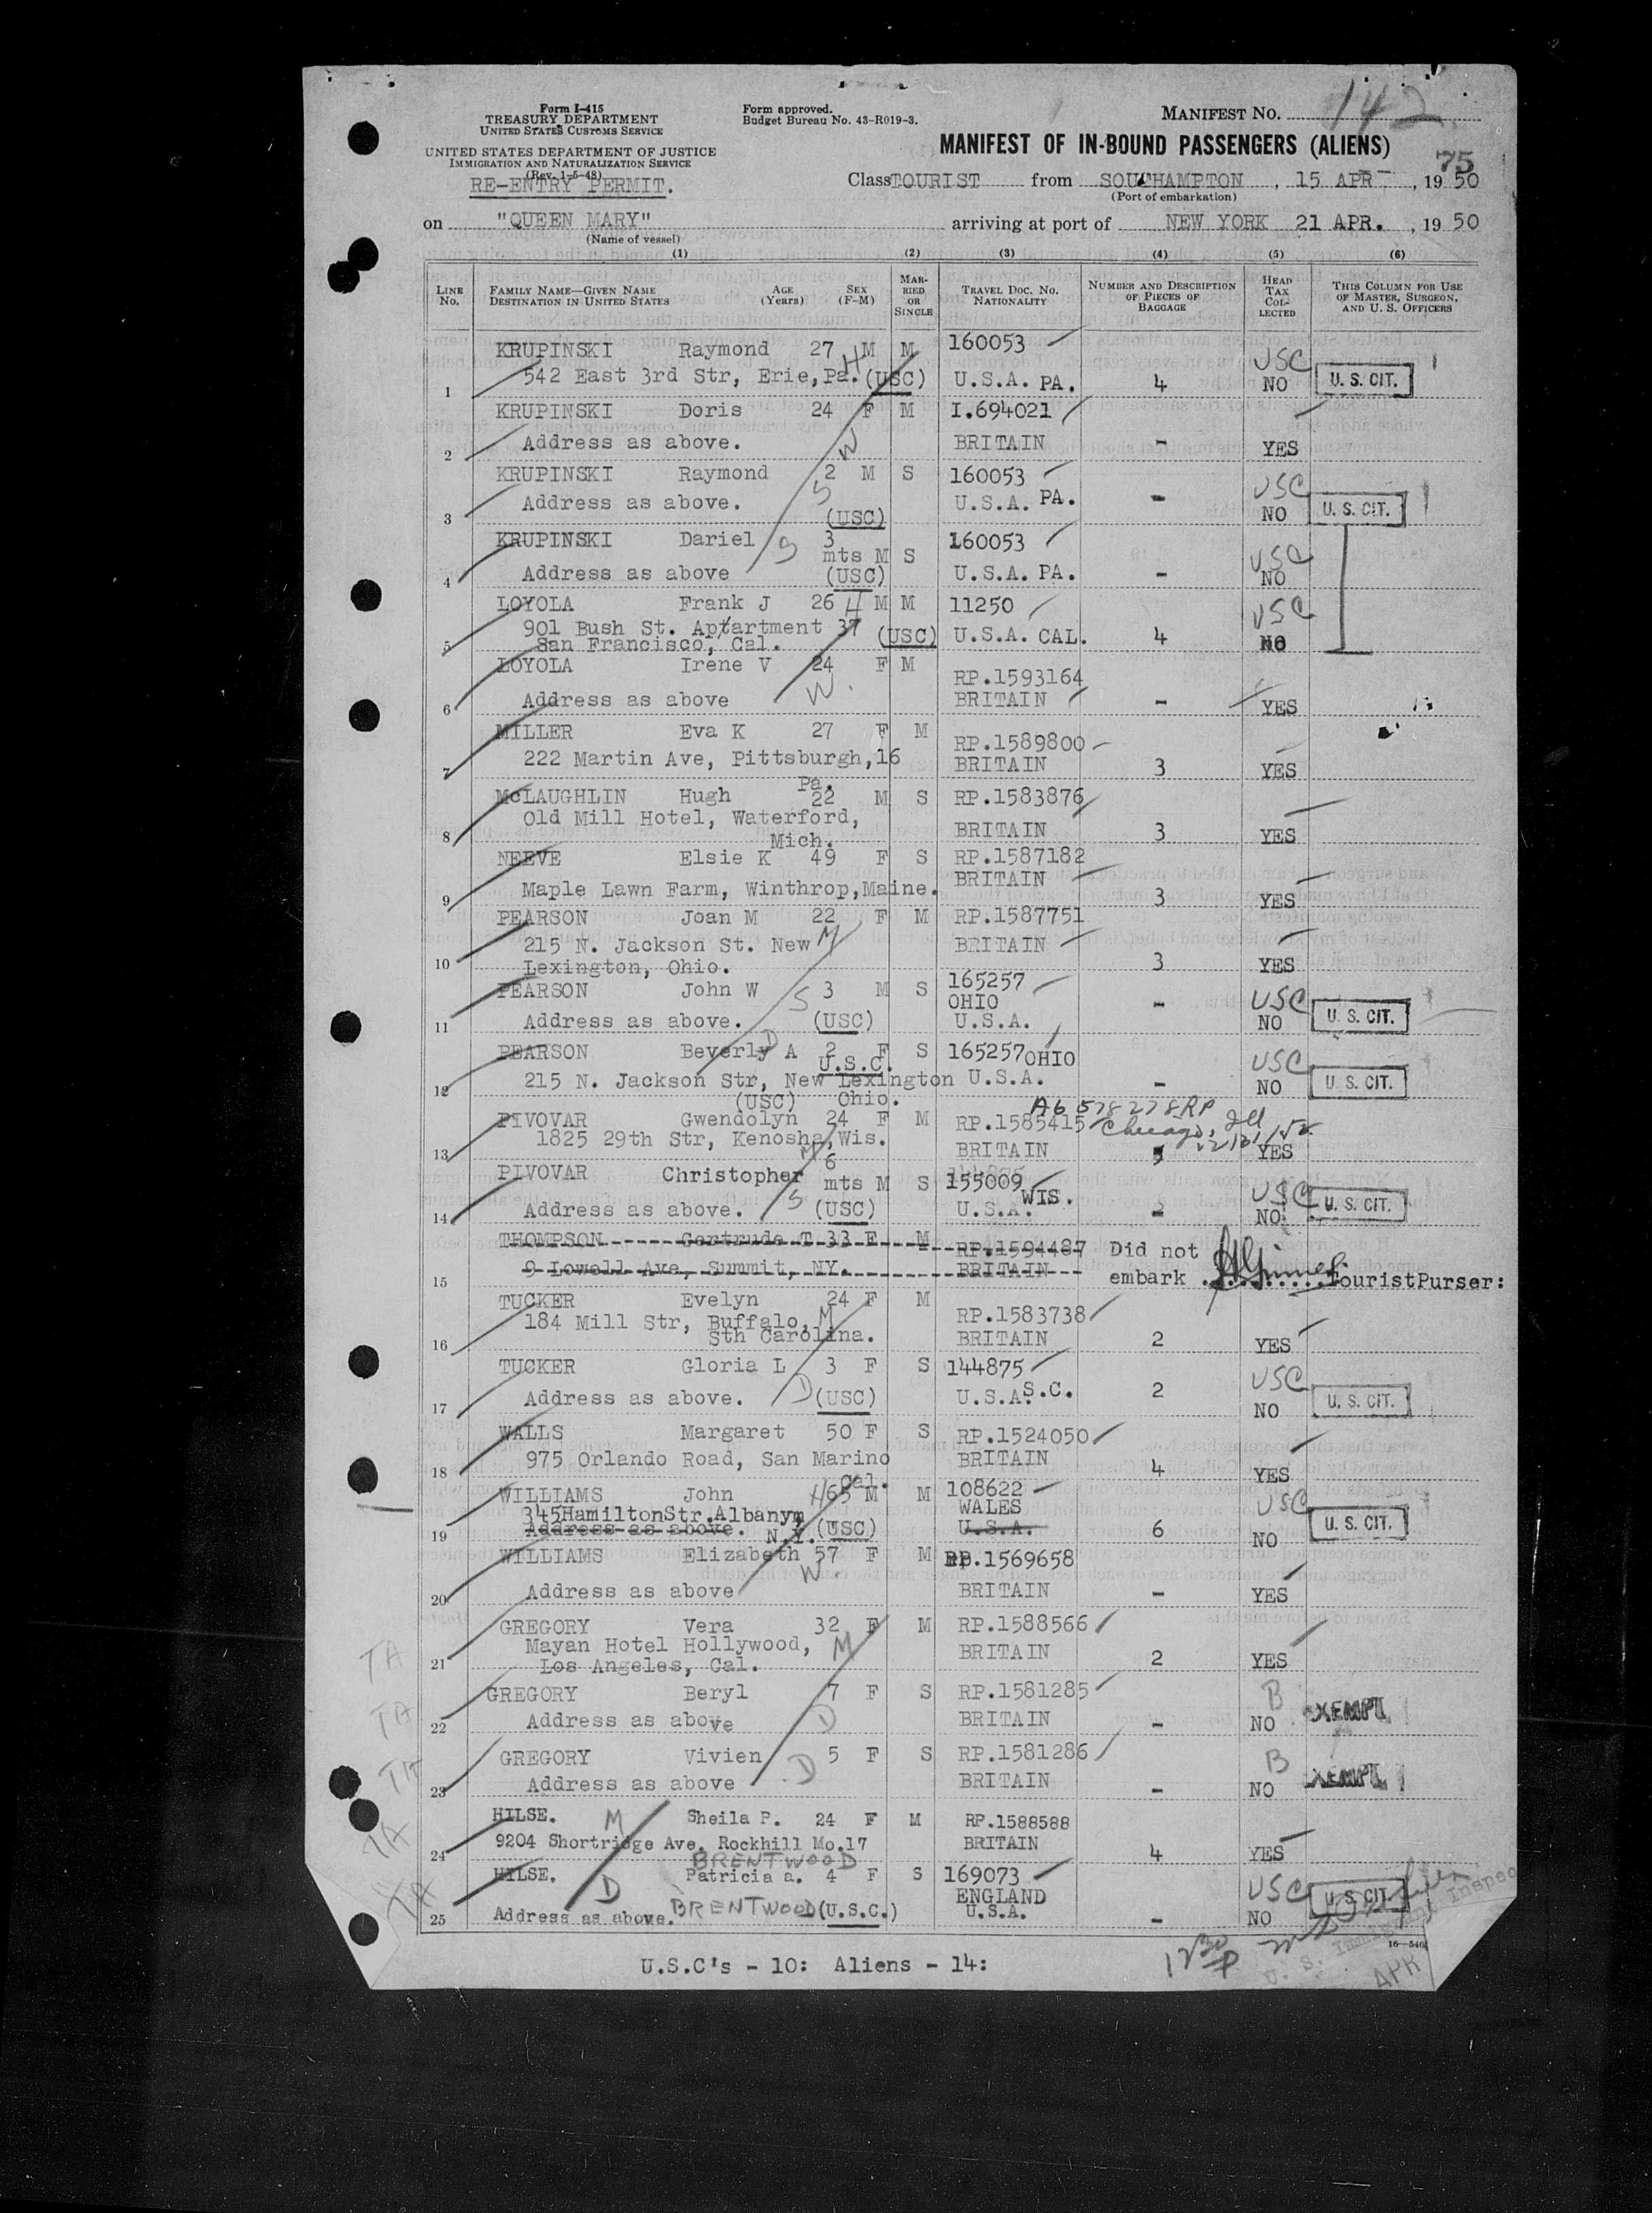 Form I-415
TREASURY DEPARTMENT
UNITED STATES CUSTOMS SERVICE
UNITED STATES DEPARTMENT OF JUSTICE
IMMIGRATION AND NATURALIZATION SERVICE
(Rev. 1-5-48)
RE-ENTRY PERMIT.
Form approved.
Budget Bureau No. 43-R019-3.
MANIFEST NO. 142
MANIFEST OF IN-BOUND PASSENGERS (ALIENS)
75
Class TOURIST from SOUTHAMPTON, 15 APR, 1950
(Port of embarkation)
on "QUEEN MARY" arriving at port of NEW YORK 21 APR., 1950
(Name of vessel)
(1) (2) (3) (4) (5) (6)
LINE NO. FAMILY NAME—GIVEN NAME DESTINATION IN UNITED STATES AGE (Years) SEX (F-M) MARRIED OR SINGLE TRAVEL DOC. NO. NATIONALITY NUMBER AND DESCRIPTION OF PIECES OF BAGGAGE HEAD TAX COLLECTED THIS COLUMN FOR USE OF MASTER, SURGEON, AND U. S. OFFICERS
KRUPINSKI Raymond 27 H M M 160053 USC
1 542 East 3rd Str, Erie, Pa. (USC) U.S.A. PA. 4 NO U. S. CIT.
KRUPINSKI Doris 24 F M I.694021
2 Address as above. W BRITAIN - YES
KRUPINSKI Raymond 2 M S 160053 USC
3 Address as above. S (USC) U.S.A. PA. - NO U. S. CIT.
KRUPINSKI Dariel S 3 mts M S 160053 USC
4 Address as above (USC) U.S.A. PA. - NO
LOYOLA Frank J 26 H M M 11250 USC
901 Bush St. Apartment 37
5 San Francisco, Cal. (USC) U.S.A. CAL. 4 NO
LOYOLA Irene V 24 F M RP.1593164
6 Address as above W. BRITAIN - YES
MILLER Eva K 27 F M RP.1589800
7 222 Martin Ave, Pittsburgh,16 Pa. BRITAIN 3 YES
McLAUGHLIN Hugh 22 M S RP.1583876
8 Old Mill Hotel, Waterford, Mich. BRITAIN 3 YES
NEEVE Elsie K 49 F S RP.1587182
9 Maple Lawn Farm, Winthrop,Maine. BRITAIN 3 YES
PEARSON Joan M 22 F M RP.1587751
215 N. Jackson St. New M BRITAIN
10 Lexington, Ohio. 3 YES
PEARSON John W S 3 M S 165257 OHIO USC
11 Address as above. (USC) U.S.A. - NO U. S. CIT.
PEARSON Beverly A D 2 F S 165257 OHIO USC
U.S.C.
12 215 N. Jackson Str, New Lexington U.S.A. - NO U. S. CIT.
(USC) Ohio.
A6 578 278 RP
PIVOVAR Gwendolyn 24 F M RP.1585415 Chicago, Ill
13 1825 29th Str, Kenosha, Wis. M BRITAIN YES
PIVOVAR Christopher 6 mts M S 155009 WIS. USC
14 Address as above. S (USC) U.S.A. - NO U. S. CIT.
THOMPSON Gertrude T 33 F M RP.1594487 Did not
15 9 Lowell Ave, Summit, NY. BRITAIN embark TouristPurser:
TUCKER Evelyn 24 F M RP.1583738
16 184 Mill Str, Buffalo, Sth Carolina. M BRITAIN 2 YES
TUCKER Gloria L 3 F S 144875 USC
17 Address as above. D (USC) U.S.A. S.C. 2 NO U. S. CIT.
WALLS Margaret 50 F S RP.1524050
18 975 Orlando Road, San Marino Cal. BRITAIN 4 YES
WILLIAMS John H 65 M M 108622 WALES USC
345HamiltonStr.Albany, N.Y.
19 Address as above. (USC) U.S.A. 6 NO U. S. CIT.
WILLIAMS Elizabeth 57 F M RP.1569658
20 Address as above W. BRITAIN - YES
GREGORY Vera 32 F M RP.1588566
Mayan Hotel Hollywood, M
21 Los Angeles, Cal. BRITAIN 2 YES
TA
GREGORY Beryl 7 F S RP.1581285 B
22 Address as above D BRITAIN - NO EXEMPT
TA
GREGORY Vivien 5 F S RP.1581286 B
23 Address as above D BRITAIN - NO EXEMPT
TA
HILSE. M Sheila P. 24 F M RP.1588588
24 9204 Shortridge Ave. Rockhill Mo.17 BRITAIN 4 YES
TA
BRENTWOOD
HILSE. D Patricia a. 4 F S 169073 ENGLAND USC
25 Address as above. BRENTWOOD (U.S.C.) U.S.A. - NO U. S. CIT.
TA
U.S.C's - 10: Aliens - 14:
12 30 P
U. S. Immigrant Inspec
APR